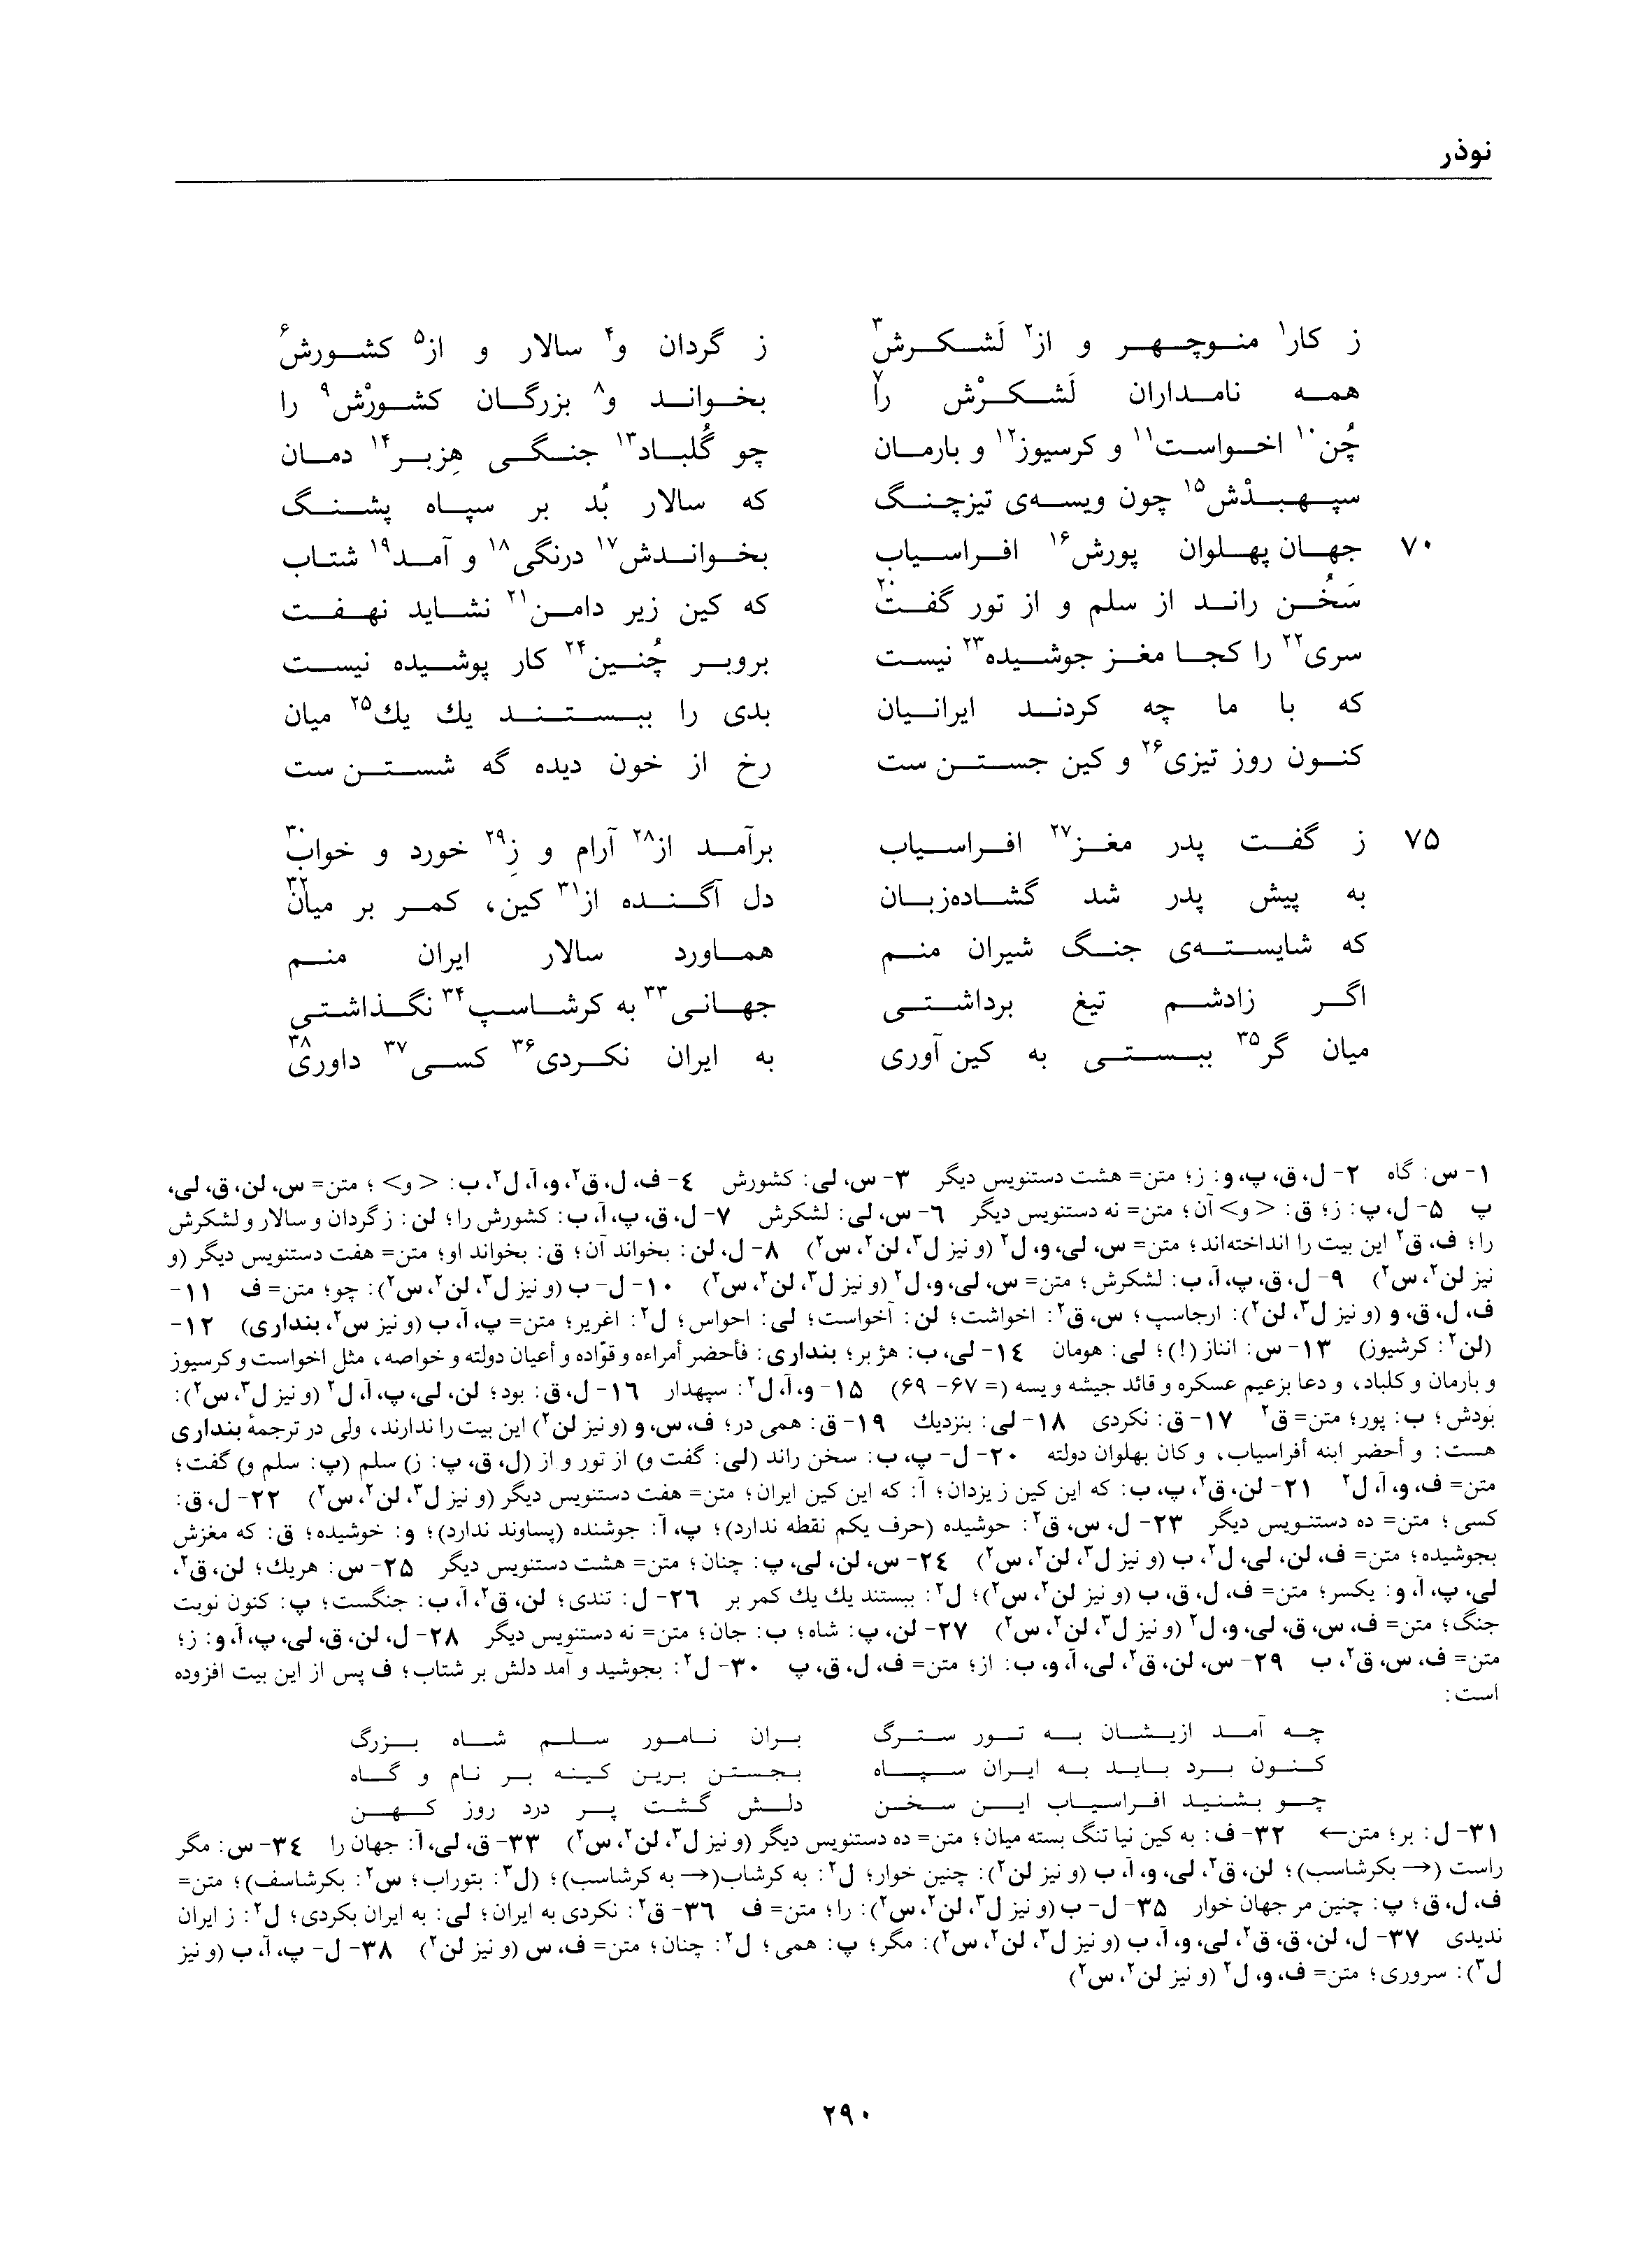 نوذر
ز کار۱ منوچهر و از۲ لَشکرش۳ ز گردان و۴ سالار و از۵ کشورش۶
همه نامداران لَشکرْش را۷ بخواند و۸ بزرگان کشورْش۹ را
چُن۱۰ اخواست۱۱ و کرسیوز۱۲ و بارمان چو گُلباد۱۳ جنگی هِزبر۱۴ دمان
سپهبدْش۱۵ چون ویسه‌ی تیزچنگ که سالار بُد بر سپاه پشنگ
۷۰ جهان پهلوان پورش۱۶ افراسیاب بخواندش۱۷ درنگی۱۸ و آمد۱۹ شتاب
سَخُن راند از سلم و از تور گفت۲۰ که کین زیر دامن۲۱ نشاید نهفت
سری۲۲ را کجا مغز جوشیده۲۳ نیست بروبر چُنین۲۴ کار پوشیده نیست
که با ما چه کردند ایرانیان بدی را ببستند یك یك۲۵ میان
کنون روز تیزی۲۶ و کین جستن ست رخ از خون دیده گه شستن ست
۷۵ ز گفت پدر مغز۲۷ افراسیاب برآمد از۲۸ آرام و زِ۲۹ خورد و خواب۳۰
به پیش پدر شد گشاده‌زبان دل آگنده از۳۱ کین، کمر بر میان۳۲
که شایسته‌ی جنگ شیران منم هماورد سالار ایران منم
اگر زادشم تیغ برداشتی جهانی۳۳ به کرشاسپ۳۴ نگذاشتی
میان گر۳۵ ببستی به کین آوری به ایران نکردی۳۶ کسی۳۷ داوری۳۸
۱- س: گاه ۲- ل، ق، پ، و: ز؛ متن= هشت دستنویس دیگر ۳- س، لی: کشورش ۴- ف، ل، ق۲، و، آ، ل۲، ب: < و> ؛ متن= س، لن، ق، لی،
پ ۵- ل، پ: ز؛ ق: < و> آن؛ متن= نه دستنویس دیگر ۶- س، لی: لشکرش ۷- ل، ق، پ، آ، ب: کشورش را؛ لن: ز گردان و سالار و لشکرش
را؛ ف، ق۲ این بیت را انداخته‌اند؛ متن= س، لی، و، ل۲ (و نیز ل۳، لن۲، س۲) ۸- ل، لن: بخواند آن؛ ق: بخواند او؛ متن= هفت دستنویس دیگر (و
نیز لن۲، س۲) ۹- ل، ق، پ، آ، ب: لشکرش؛ متن= س، لی، و، ل۲ (و نیز ل۳، لن۲، س۲) ۱۰- ل- ب (و نیز ل۳، لن۲، س۲): چو؛ متن= ف ۱۱-
ف، ل، ق، و (و نیز ل۳، لن۲): ارجاسپ؛ س، ق۲: اخواشت؛ لن: آخواست؛ لی: احواس؛ ل۲: اغریر؛ متن= پ، آ، ب (و نیز س۲، بنداری) ۱۲-
(لن۲: کرشیوز) ۱۳- س: انناز (!)؛ لی: هومان ۱۴- لی، ب: هژبر؛ بنداری: فأحضر أمراءه و قوّاده و أعیان دولته و خواصه، مثل اخواست و کرسیوز
و بارمان و کلباد، و دعا بزعیم عسکره و قائد جیشه ویسه (= ۶۷- ۶۹) ۱۵- و، آ، ل۲: سپهدار ۱۶- ل، ق: بود؛ لن، لی، پ، آ، ل۲ (و نیز ل۳، س۲):
بودش؛ ب: پور؛ متن= ق۲ ۱۷- ق: نکردی ۱۸- لی: بنزدیك ۱۹- ق: همی در؛ ف، س، و (و نیز لن۲) این بیت را ندارند، ولی در ترجمهٔ بنداری
هست: و أحضر ابنه أفراسیاب، و کان بهلوان دولته ۲۰- ل- پ، ب: سخن راند (لی: گفت و) از تور و از (ل، ق، پ: ز) سلم (پ: سلم و) گفت؛
متن= ف، و، آ، ل۲ ۲۱- لن، ق۲، پ، ب: که این کین ز یزدان؛ آ: که این کین ایران؛ متن= هفت دستنویس دیگر (و نیز ل۳، لن۲، س۲) ۲۲- ل، ق:
کسی؛ متن= ده دستنویس دیگر ۲۳- ل، س، ق۲: حوشیده (حرف یکم نقطه ندارد)؛ پ، آ: جوشنده (پساوند ندارد)؛ و: خوشیده؛ ق: که مغزش
بجوشیده؛ متن= ف، لن، لی، ل۲، ب (و نیز ل۳، لن۲، س۲) ۲۴- س، لن، لی، پ: چنان؛ متن= هشت دستنویس دیگر ۲۵- س: هریك؛ لن، ق۲،
لی، پ، آ، و: یکسر؛ متن= ف، ل، ق، ب (و نیز لن۲، س۲)؛ ل۲: ببستند یك یك کمر بر ۲۶- ل: تندی؛ لن، ق۲، آ، ب: جنگست؛ پ: کنون نوبت
جنگ؛ متن= ف، س، ق، لی، و، ل۲ (و نیز ل۳، لن۲، س۲) ۲۷- لن، پ: شاه؛ ب: جان؛ متن= نه دستنویس دیگر ۲۸- ل، لن، ق، لی، پ، آ، و: ز؛
متن= ف، س، ق۲، ب ۲۹- س، لن، ق۲، لی، آ، و، ب: از؛ متن= ف، ل، ق، پ ۳۰- ل۲: بجوشید و آمد دلش بر شتاب؛ ف پس از این بیت افزوده
است:
چه آمد ازیشان به تور سترگ بران نامور سلم شاه بزرگ
کنون برد باید به ایران سپاه بجستن برین کینه بر نام و گاه
چو بشنید افراسیاب این سخن دلش گشت پر درد روز کهن
۳۱- ل: بر؛ متن← ۳۲- ف: به کین نیا تنگ بسته میان؛ متن= ده دستنویس دیگر (و نیز ل۳، لن۲، س۲) ۳۳- ق، لی، آ: جهان را ۳۴- س: مگر
راست (→ بکرشاسب)؛ لن، ق۲، لی، و، آ، ب (و نیز لن۲): چنین خوار؛ ل۲: به کرشاب(→ به کرشاسب)؛ (ل۳: بتوراب؛ س۲: بکرشاسف)؛ متن=
ف، ل، ق؛ پ: چنین مر جهان خوار ۳۵- ل- ب (و نیز ل۳، لن۲، س۲): را؛ متن= ف ۳۶- ق۲: نکردی به ایران؛ لی: به ایران بکردی؛ ل۲: ز ایران
ندیدی ۳۷- ل، لن، ق، ق۲، لی، و، آ، ب (و نیز ل۳، لن۲، س۲): مگر؛ پ: همی؛ ل۲: چنان؛ متن= ف، س (و نیز لن۲) ۳۸- ل- پ، آ، ب (و نیز
ل۳): سروری؛ متن= ف، و، ل۲ (و نیز لن۲، س۲)
۲۹۰